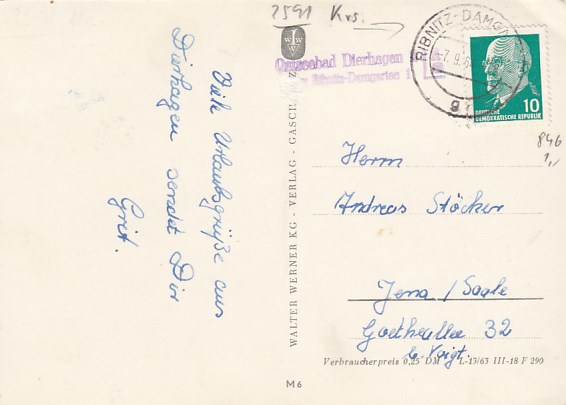 2591 Krs.
Ostseebad Dierhagen
Ribnitz-Damgarten
RIBNITZ-DAMG
-7.9.6
10
DEUTSCHE
DEMOKRATISCHE REPUBLIK
846
1,-
Viele Urlaubsgrüße aus
Dierhagen sendet Dir
Grit.
WALTER WERNER KG - VERLAG - GASCH
WWW
Herrn
Andreas Stöcker
Jena / Saale
Goetheallee 32
b. Voigt.
Verbraucherpreis 0,25 DM L-13/63 III-18 F 290
M 6